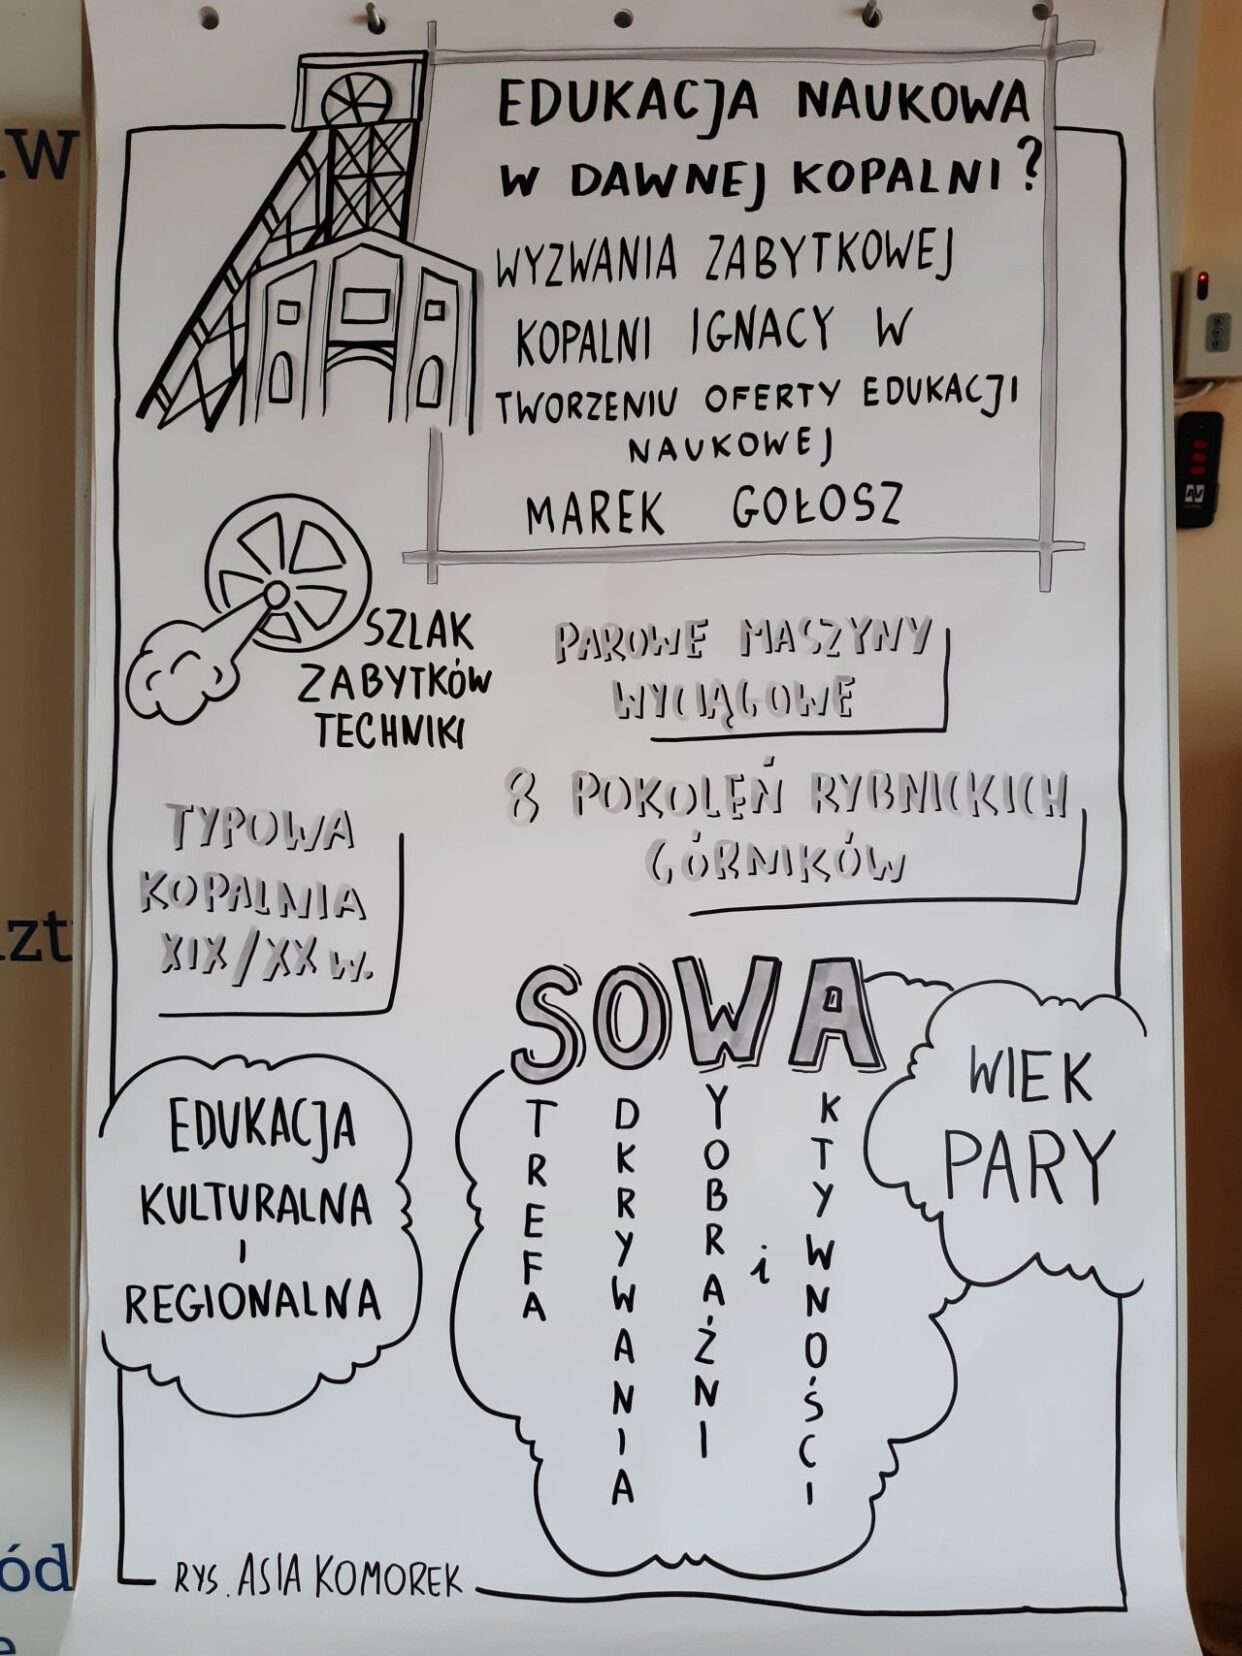 EDUKACJA NAUKOWA
W DAWNEJ KOPALNI?
WYZWANIA ZABYTKOWEJ
KOPALNI IGNACY W
TWORZENIU OFERTY EDUKACJI
NAUKOWEJ
MAREK GOŁOSZ
SZLAK
ZABYTKÓW
TECHNIKI
PAROWE MASZYNY
WYCIĄGOWE
8 POKOLĘŃ RYBNICKICH
GÓRNIKÓW
TYPOWA
KOPALNIA
XIX/XX w.
SOWA
STREFA
ODKRYWANIA
WYOBRAŹNI
i
AKTYWNOŚCI
WIEK
PARY
EDUKACJA
KULTURALNA
I
REGIONALNA
RYS. ASIA KOMOREK